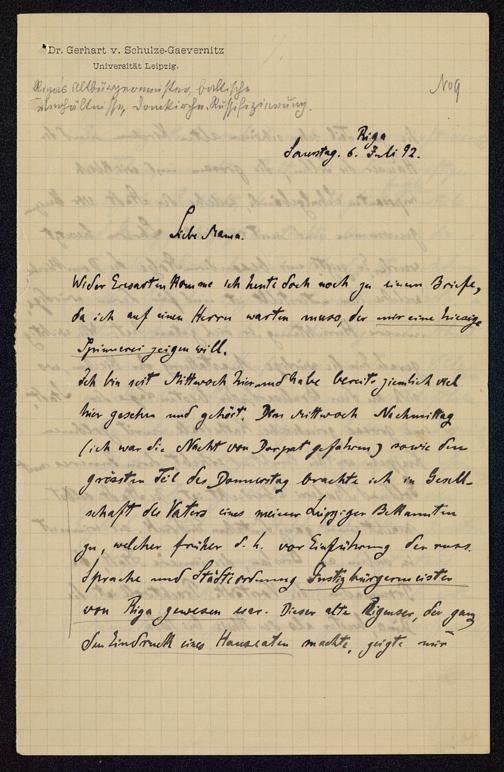 Dr. Gerhart v. Schulze-Gaevernitz
Universität Leipzig.
Rigas Altbürgermeister, baltische
Verhältnisse, Domkirche. Russifizierung.
No 9
Riga
Samstag. 6. Juli 92.
Liebe Mama.
Wider Erwarten komme ich heute doch noch zu einem Briefe,
da ich auf einen Herrn warten muss, der mir eine hiesige
Spinnerei zeigen will.
Ich bin seit Mittwoch hier und habe bereits ziemlich viel
hier gesehen und gehört. Den Mittwoch Nachmittag
(ich war die Nacht von Dorpat gefahren) sowie den
grössten Teil des Donnerstag brachte ich in Gesell-
schaft des Vaters eines meiner Leipziger Bekannten
zu, welcher früher d. h. vor Einführung der russ.
Sprache und Städteordnung Justizbürgermeister
von Riga gewesen war. Dieser alte Rigenser, der ganz
den Eindruck eines Hanseaten machte, zeigte mir